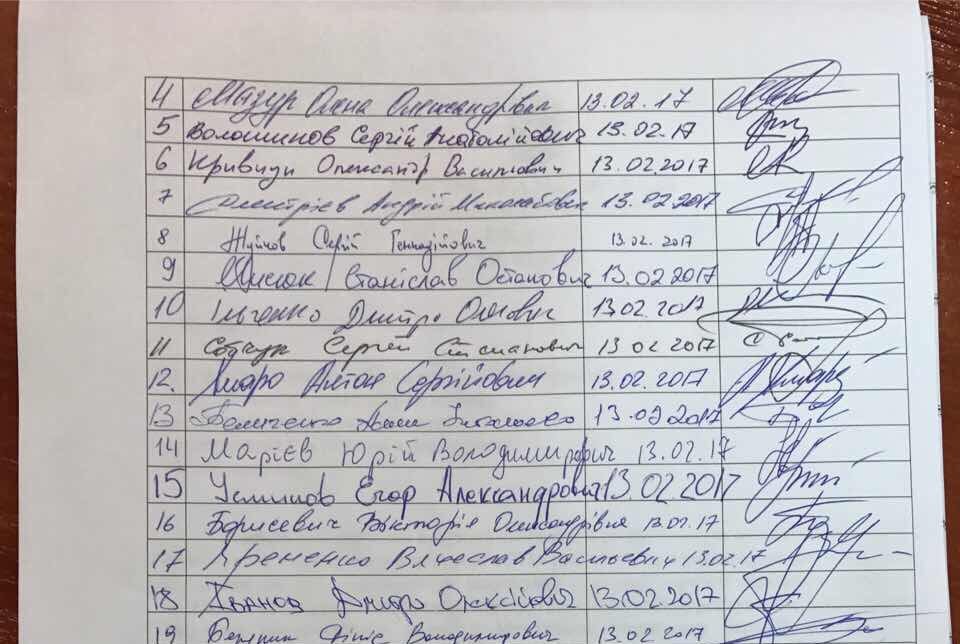 4 Мазур Олена Олександрівна 13.02.17
5 Волошинов Сергій Анатолійович 13.02.17
6 Кривицун Олександр Васильович 13.02.2017
7 Дмитрієв Андрій Миколайович 13.02.2017
8 Жуйков Сергій Геннадійович 13.02.2017
9 Станіслав Остапович 13.02.2017
10 Ільченко Дмитро Олегович 13.02.2017
11 Сергій Степанович 13.02.2017
12. Антон Сергійович 13.02.2017
13 13.02.2017
14 Марієв Юрій Володимирович 13.02.17
15 Устинов Егор Александрович 13.02.2017
16 Борисевич Вікторія Олександрівна 13.02.17
17 Яременко Вячеслав Васильевич 13.02.17
18 Іванов Дмитро Олексійович 13.02.2017
19 Володимирович 13.02.2017